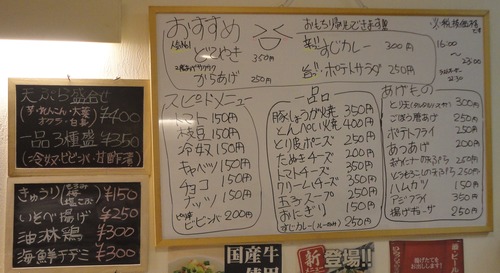 天ぷら盛合せ
(芋・れんこん・大葉
¥400
一品3種盛 ¥350
(冷奴・ビビンバ・甘酢漬)
きゅうり ¥150
いそべ揚げ ¥250
油淋鶏 ¥300
海鮮チヂミ ¥300
おすすめ
どてやき 350円
からあげ 250円
おもち帰りできます!!
すじカレー 300円
ポテトサラダ 250円
※税抜価格
16:00
〜
23:00
スピードメニュー
トマト 150円
枝豆 150円
冷奴 150円
キャベツ 150円
チョコ 150円
ナッツ 150円
ビビンバ 200円
一品
豚しょうが焼 350円
とんぺい焼 400円
とり皮ポンズ 250円
たぬきチーズ 350円
トマトチーズ 350円
クリームチーズ 350円
玉子スープ 250円
おにぎり 150円
すじカレー(ルーのみ) 250円
あげもの
300円
ごぼう唐あげ 250円
ポテトフライ 250円
あつあげ 200円
250円
とうもろこし天ぷら 250円
ハムカツ 150円
アジフライ 350円
揚げギョーザ 250円
国産牛
使用
新登場!!